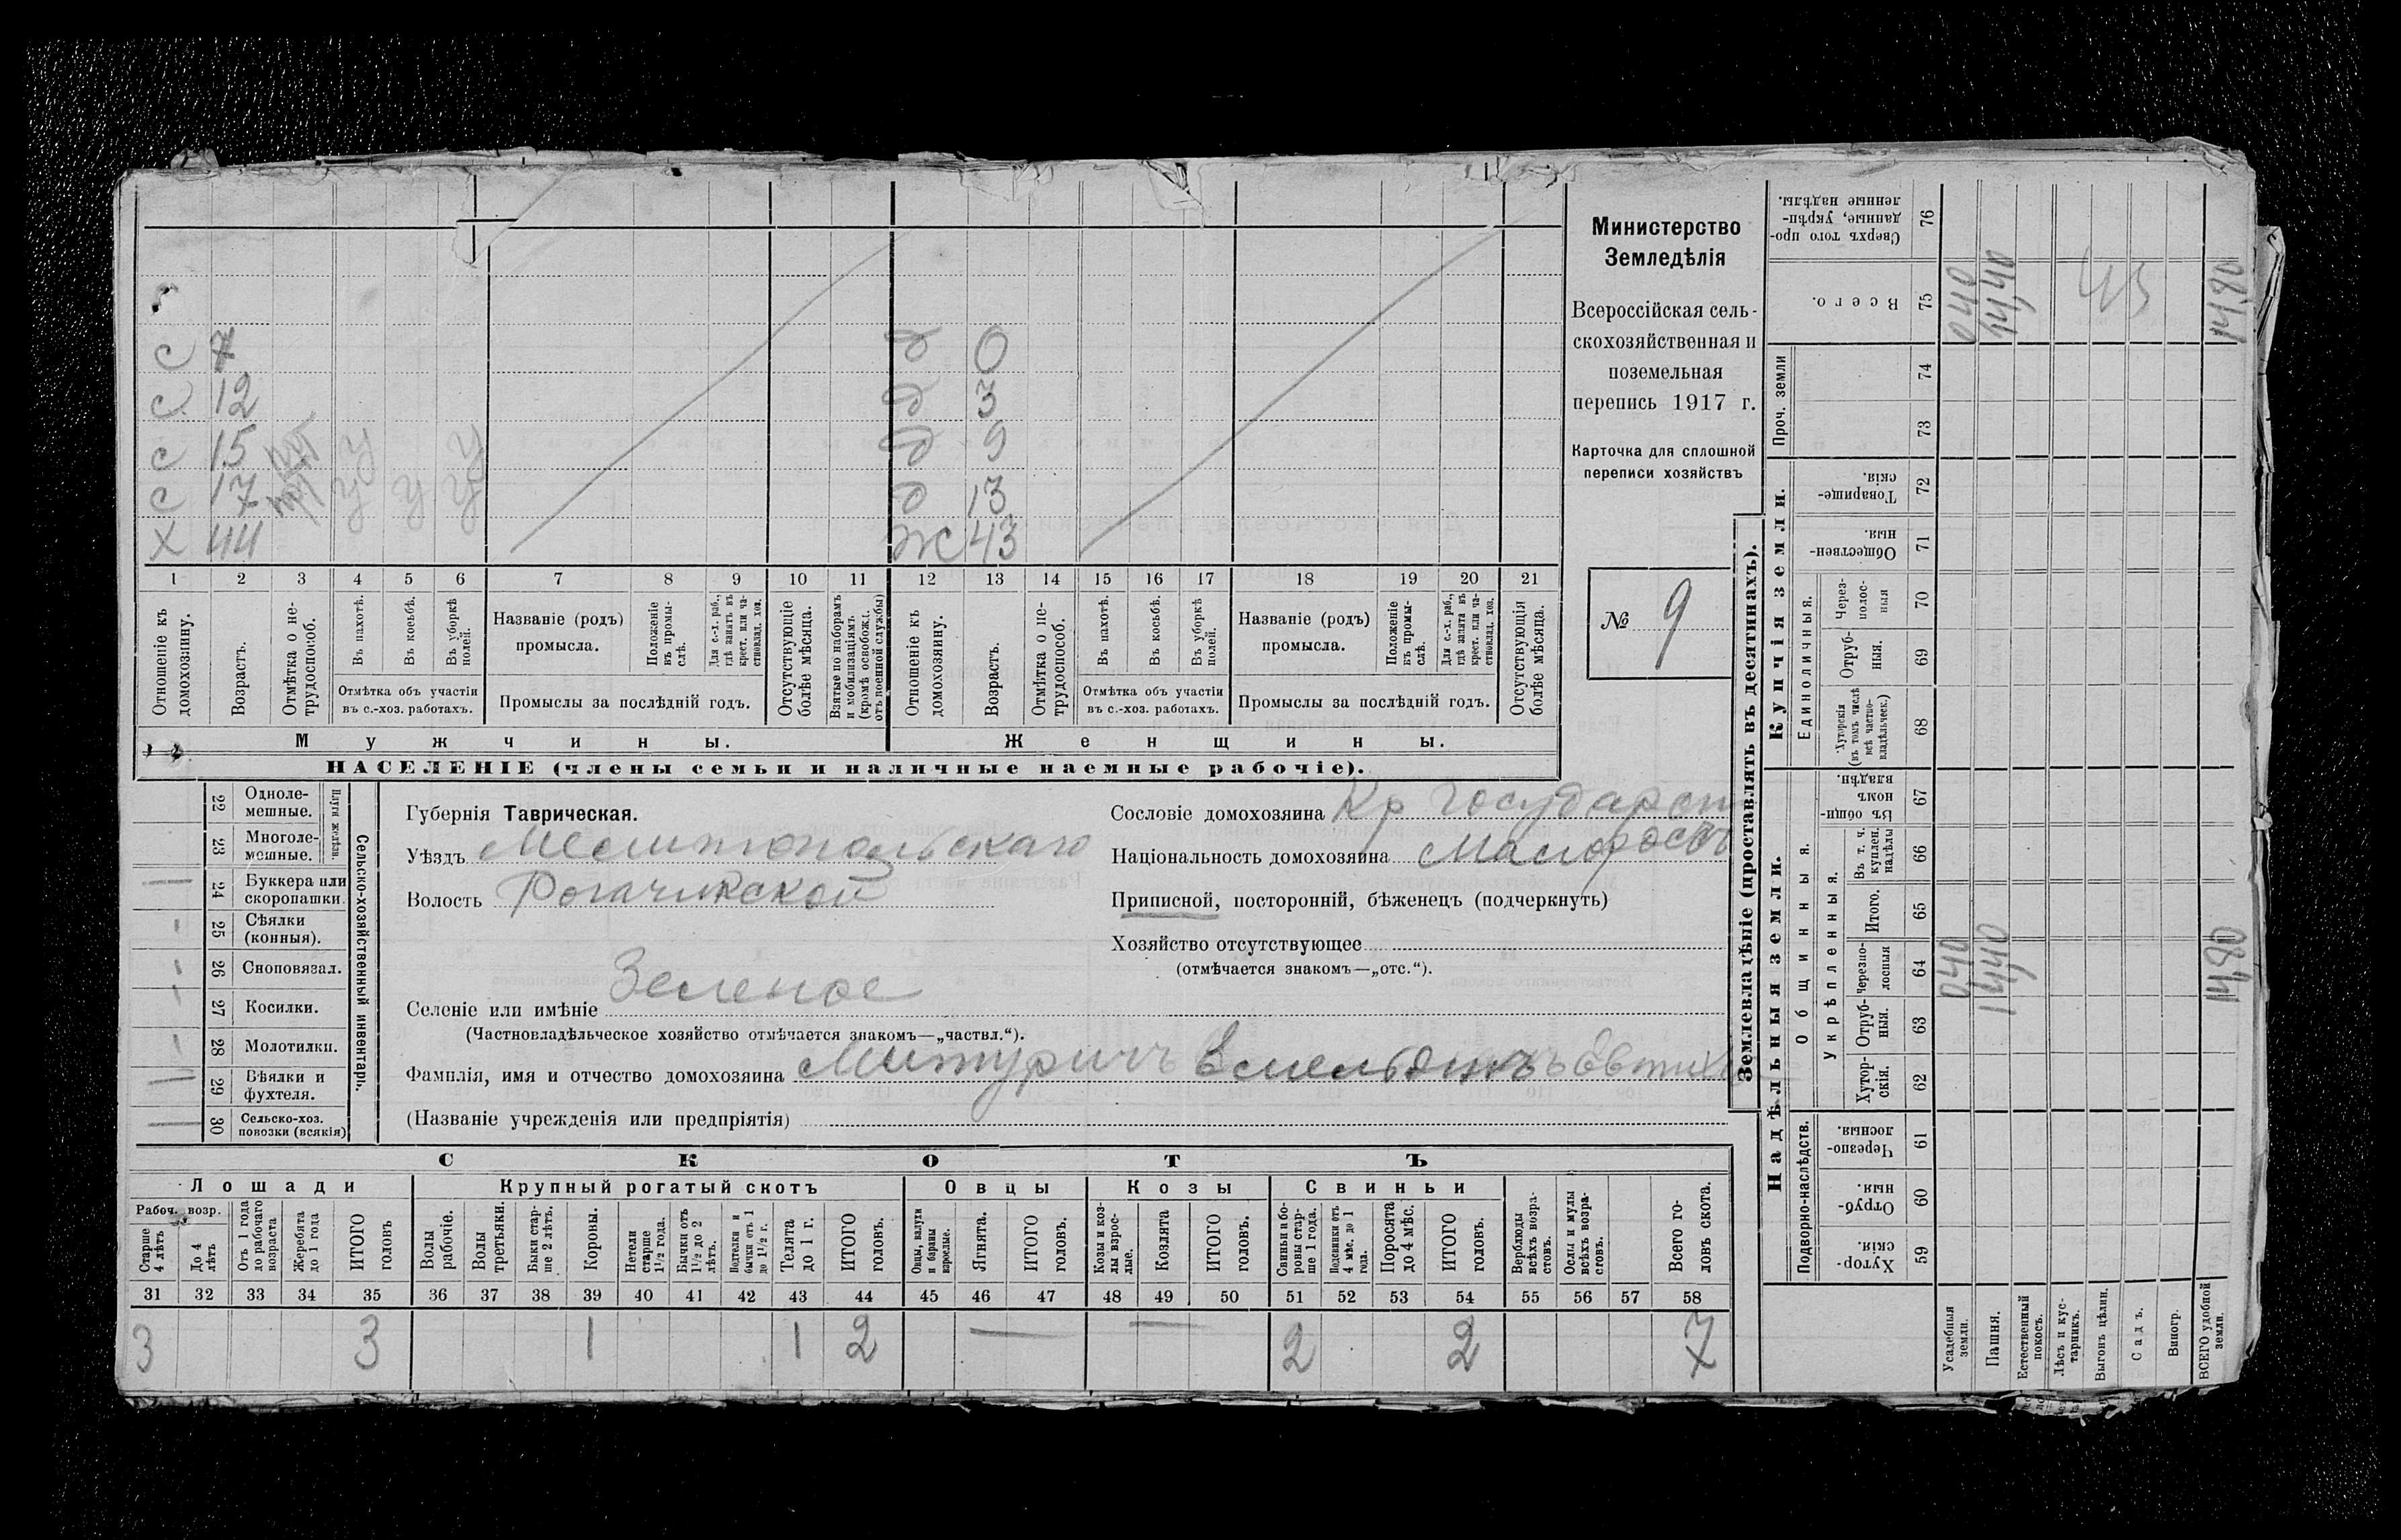 с 7 д 0
с 12 д 3
с 15 у у д 9
с 17 у у у д 13
х 44 ж 43
1 2 3 4 5 6 7 8 9 10 11 12 13 14 15 16 17 18 19 20 21
Отношеніе къ домохозяину.
Возрастъ.
Отмѣтка о не-трудоспособ.
Въ пахотѣ.
Въ косьбѣ.
Въ уборкѣ полей.
Отмѣтка объ участіи
въ с.-хоз. работахъ.
Названіе (родъ)
промысла.
Положеніе въ промы-слѣ.
Для с.-х. раб., гдѣ занятъ въ крест. или ча-стновлад. хоз.
Промыслы за послѣдній годъ.
Отсутствующіе болѣе мѣсяца.
Взятые по наборамъ и мобилизаціямъ (кромѣ освобожд. отъ военной службы)
Отношеніе къ домохозяину.
Возрастъ.
Отмѣтка о не-трудоспособ.
Въ пахотѣ.
Въ косьбѣ.
Въ уборкѣ полей.
Отмѣтка объ участіи
въ с.-хоз. работахъ.
Названіе (родъ)
промысла.
Положеніе въ промы-слѣ.
Для с.-х. раб., гдѣ занята въ крест. или ча-стновлад. хоз.
Промыслы за послѣдній годъ.
Отсутствующія болѣе мѣсяца.
Мужчины. Женщины.
НАСЕЛЕНІЕ (члены семьи и наличные наемные рабочіе).
Министерство
Земледѣлія
Всероссійская сель-
скохозяйственная и
поземельная
перепись 1917 г.
Карточка для сплошной
переписи хозяйствъ
№ 9
Сельско-хозяйственный инвентарь.
Плуги желѣзн.
22 Одноле-мешные.
23 Многоле-мешные.
24 Буккера или скоропашки.
25 Сѣялки (конныя).
26 Сноповязал.
27 Косилки.
28 Молотилки.
29 Вѣялки и фухтеля.
30 Сельско-хоз. повозки (всякія)
Губернія Таврическая.
Уѣздъ Мелитопольскаго
Волость Рогачикской
Селеніе или имѣніе Зеленое
(Частновладѣльческое хозяйство отмѣчается знакомъ—„частвл.“).
Фамилія, имя и отчество домохозяина Митуричъ Емельянъ Евтих
(Названіе учрежденія или предпріятія)
Сословіе домохозяина Кр государст
Національность домохозяина Малороссъ
Приписной, посторонній, бѣженецъ (подчеркнуть)
Хозяйство отсутствующее
(отмѣчается знакомъ—„отс.“).
СКОТЪ
Лошади Крупный рогатый скотъ Овцы Козы Свиньи
Рабоч. возр.
Старше 4 лѣтъ
До 4 лѣтъ
Отъ 1 года до рабочаго возраста
Жеребята до 1 года
ИТОГО головъ
Волы рабочіе.
Волы третьяки.
Быки стар-ше 2 лѣтъ.
Коровы.
Нетели старше 1½ года.
Бычки отъ 1½ до 2 лѣтъ.
Подтелки и бычки отъ 1 до 1½ г.
Телята до 1 г.
ИТОГО головъ.
Овцы, валухи и бараны взрослые.
Ягнята.
ИТОГО головъ.
Козы и коз-лы взрос-лые.
Козлята
ИТОГО головъ.
Свиньи и бо-ровы стар-ше 1 года.
Подсвинки отъ 4 мѣс. до 1 года.
Поросята до 4 мѣс.
ИТОГО головъ.
Верблюды всѣхъ возра-стовъ.
Ослы и мулы всѣхъ возра-стовъ.
Всего го-ловъ скота.
31 32 33 34 35 36 37 38 39 40 41 42 43 44 45 46 47 48 49 50 51 52 53 54 55 56 57 58
3 3 1 1 2 — — 2 2 7
Землевладѣніе (проставлять въ десятинахъ).
Надѣльныя земли. Купчія земли.
Подворно-наслѣдств.
Общинныя.
Укрѣпленныя.
Единоличныя.
Проч. земли
Хутор-скія. 59
Отруб-ныя. 60
Черезпо-лосныя. 61
Хутор-скія. 62
Отруб-ныя. 63
Черезпо-лосныя 64
Итого. 65
Въ т. ч. куплен. надѣлы 66
Въ общин-номъ владѣн. 67
Хуторскія (въ томъ числѣ всѣ частно-владѣльческ.) 68
Отруб-ныя. 69
Через-полос-ныя 70
Обществен-ныя 71
Товарище-скія. 72
73
74
Всего. 75
Сверхъ того про-данные, укрѣп-ленные надѣлы. 76
Усадебныя земли. 0,40 0,40
Пашня. 14,40 14,40
Естественный покосъ.
Лѣсъ и кус-тарникъ.
Выгонъ цѣлин.
Садъ.
Виногр.
ВСЕГО удобной земли. 14,80 14,80